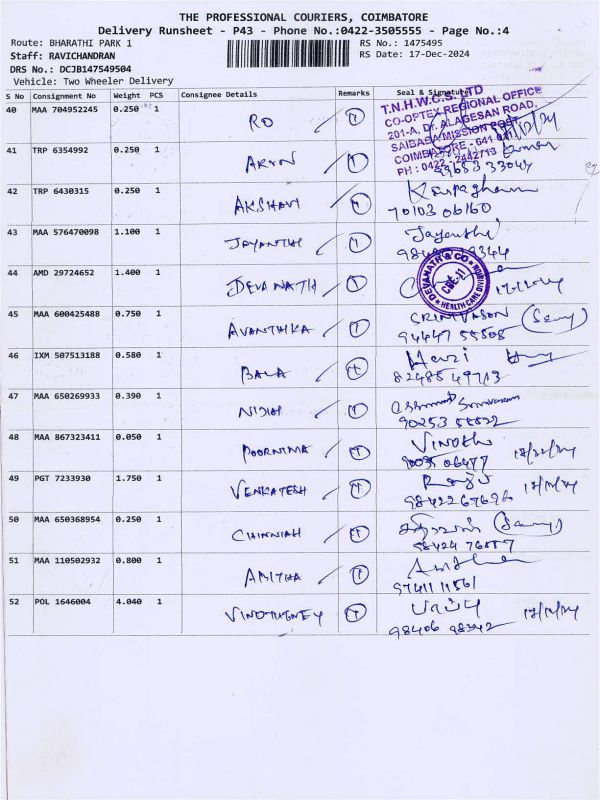 THE PROFESSIONAL COURIERS, COIMBATORE
Delivery Runsheet - P43 - Phone No.:0422-3505555 - Page No.:4
Route: BHARATHI PARK 1 RS No.: 1475495
Staff: RAVICHANDRAN RS Date: 17-Dec-2024
DRS No.: DCJB147549504
Vehicle: Two Wheeler Delivery
S No Consignment No Weight PCS Consignee Details Remarks Seal & Signature
T.N.H.W.C.S. LTD
CO-OPTEX REGIONAL OFFICE
201-A, Dr. ALAGESAN ROAD,
SAIBABA MISSION POST
COIMBATORE - 641
PH : 0422 - 2442713
40 MAA 704952245 0.250 1 RO
41 TRP 6354992 0.250 1 ARUN
42 TRP 6430315 0.250 1 AKSHAVI
70103 06160
43 MAA 576470098 1.100 1 JAYANTHI Jayanthi
44 AMD 29724652 1.400 1 DEVANATH
DEVANATH & CO CBE-11 HEALTH CARE DIVISION
17-12-24
45 MAA 600425488 0.750 1 AVANTHIKA SRINIVASON (Samy)
94447 55508
46 IXM 507513188 0.580 1 BALA
82485 49713
47 MAA 650269933 0.390 1 NIDISH
48 MAA 867323411 0.050 1 POORNIMA Vinoth 17/12/24
49 PGT 7233930 1.750 1 VENKATESH 17/12/24
50 MAA 650368954 0.250 1 CHINNIAH (Samy)
51 MAA 110502932 0.800 1 ANITHA
97411 11561
52 POL 1646004 4.040 1 17/12/24
98406 98342